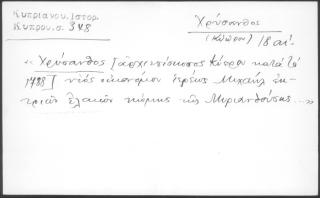 Κυπριανου. Ιστορ.
Κυπρου. σ. 348
Χρύσανθος
(Κύπρου) 18 αἰ.
« Χρύσανθος [ἀρχιεπίσκοπος Κύπρου κατὰ τὸ
υἱὸς οἰκονόμου ἱερέως Μιχαὴλ ἐκ
τριῶν ἐλαιῶν κώμης τῆς Μυριανθούσης...»